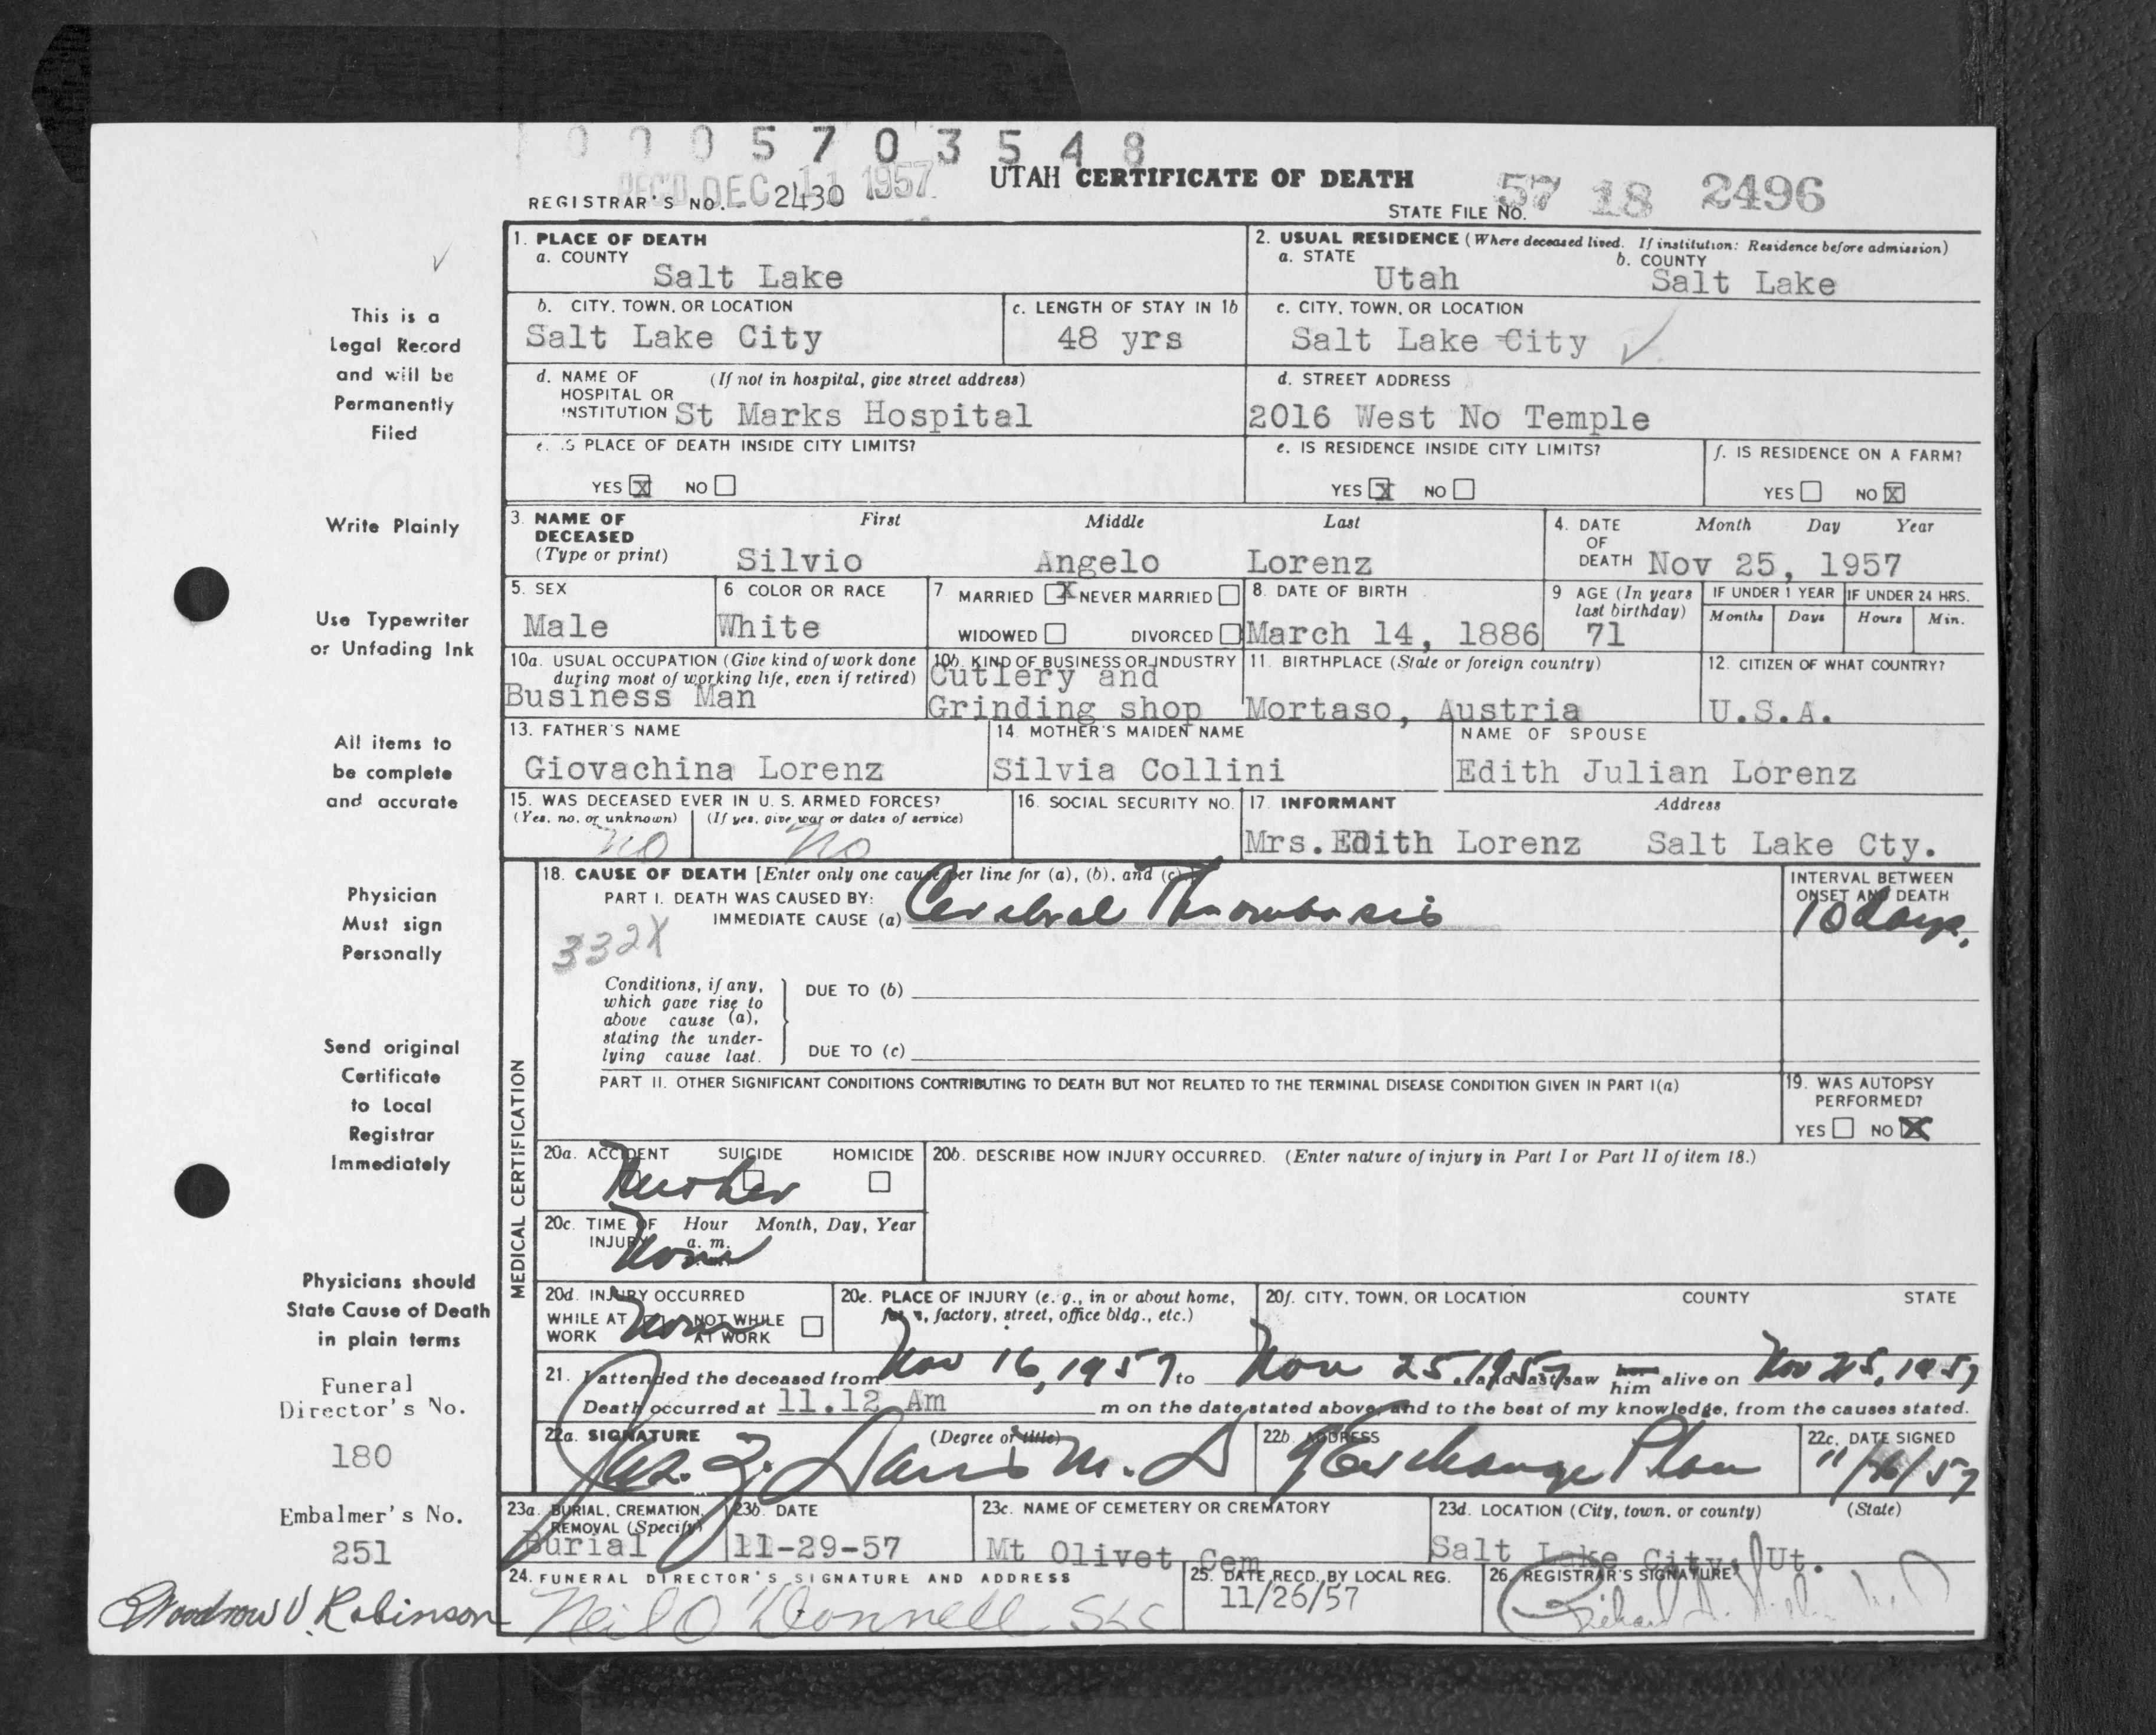 0 0 0 5 7 0 3 5 4 8
REC'D DEC 11 1957
UTAH CERTIFICATE OF DEATH
REGISTRAR'S NO. 2430
STATE FILE NO. 57 18 2496
1. PLACE OF DEATH
a. COUNTY
Salt Lake
2. USUAL RESIDENCE (Where deceased lived. If institution: Residence before admission)
a. STATE b. COUNTY
Utah Salt Lake
b. CITY, TOWN, OR LOCATION
Salt Lake City
c. LENGTH OF STAY IN 1b
48 yrs
c. CITY, TOWN, OR LOCATION
Salt Lake City
d. NAME OF (If not in hospital, give street address)
HOSPITAL OR
INSTITUTION St Marks Hospital
d. STREET ADDRESS
2016 West No Temple
e. IS PLACE OF DEATH INSIDE CITY LIMITS?
YES X NO
e. IS RESIDENCE INSIDE CITY LIMITS?
YES X NO
f. IS RESIDENCE ON A FARM?
YES NO X
3. NAME OF First Middle Last
DECEASED
(Type or print) Silvio Angelo Lorenz
4. DATE Month Day Year
OF
DEATH Nov 25, 1957
5. SEX
Male
6. COLOR OR RACE
White
7. MARRIED X NEVER MARRIED
WIDOWED DIVORCED
8. DATE OF BIRTH
March 14, 1886
9 AGE (In years
last birthday)
71
IF UNDER 1 YEAR IF UNDER 24 HRS.
Months Days Hours Min.
10a. USUAL OCCUPATION (Give kind of work done
during most of working life, even if retired)
Business Man
10b. KIND OF BUSINESS OR INDUSTRY
Cutlery and
Grinding shop
11. BIRTHPLACE (State or foreign country)
Mortaso, Austria
12. CITIZEN OF WHAT COUNTRY?
U.S.A.
13. FATHER'S NAME
Giovachina Lorenz
14. MOTHER'S MAIDEN NAME
Silvia Collini
NAME OF SPOUSE
Edith Julian Lorenz
15. WAS DECEASED EVER IN U. S. ARMED FORCES?
(Yes, no, or unknown) (If yes, give war or dates of service)
no no
16. SOCIAL SECURITY NO.
17. INFORMANT Address
Mrs. Edith Lorenz Salt Lake Cty.
MEDICAL CERTIFICATION
18. CAUSE OF DEATH [Enter only one cause per line for (a), (b), and (c)]
PART I. DEATH WAS CAUSED BY:
IMMEDIATE CAUSE (a) Cerebral Thrombosis
332X
INTERVAL BETWEEN
ONSET AND DEATH
10 days.
Conditions, if any,
which gave rise to
above cause (a),
stating the under-
lying cause last.
DUE TO (b)
DUE TO (c)
PART II. OTHER SIGNIFICANT CONDITIONS CONTRIBUTING TO DEATH BUT NOT RELATED TO THE TERMINAL DISEASE CONDITION GIVEN IN PART I(a)
19. WAS AUTOPSY
PERFORMED?
YES NO X
20a. ACCIDENT SUICIDE HOMICIDE
Neither
20b. DESCRIBE HOW INJURY OCCURRED. (Enter nature of injury in Part I or Part II of item 18.)
20c. TIME OF Hour Month, Day, Year
INJURY a. m.
None
20d. INJURY OCCURRED
WHILE AT NOT WHILE
WORK AT WORK
None
20e. PLACE OF INJURY (e. g., in or about home,
farm, factory, street, office bldg., etc.)
20f. CITY, TOWN, OR LOCATION COUNTY STATE
21. I attended the deceased from Nov 16, 1957 to Nov 25, 1957 and last saw her him alive on Nov 25, 1957
Death occurred at 11.12 Am m on the date stated above, and to the best of my knowledge, from the causes stated.
22a. SIGNATURE (Degree or title)
Jas. Z. Davis M. D
22b. ADDRESS
9 Exchange Place
22c. DATE SIGNED
11/26/57
23a. BURIAL, CREMATION,
REMOVAL (Specify)
Burial
23b. DATE
11-29-57
23c. NAME OF CEMETERY OR CREMATORY
Mt Olivet Cem
23d. LOCATION (City, town, or county) (State)
Salt Lake City, Ut.
24. FUNERAL DIRECTOR'S SIGNATURE AND ADDRESS
Neil O'Donnell SLC
25. DATE RECD. BY LOCAL REG.
11/26/57
26. REGISTRAR'S SIGNATURE
Richard
This is a
Legal Record
and will be
Permanently
Filed
Write Plainly
Use Typewriter
or Unfading Ink
All items to
be complete
and accurate
Physician
Must sign
Personally
Send original
Certificate
to Local
Registrar
Immediately
Physicians should
State Cause of Death
in plain terms
Funeral
Director's No.
180
Embalmer's No.
251
Woodrow V. Robinson